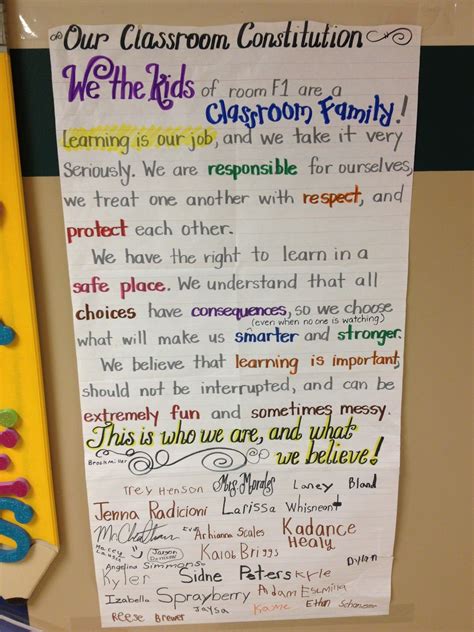 Our Classroom Constitution
We the Kids of room F1 are a
Classroom Family!
Learning is our job, and we take it very
seriously. We are responsible for ourselves,
we treat one another with respect, and
protect each other.
We have the right to learn in a
safe place. We understand that all
choices have consequences, so we choose
(even when no one is watching)
what will make us smarter and stronger.
We believe that learning is important,
should not be interrupted, and can be
extremely fun and sometimes messy.
This is who we are, and what
we believe!
Brook
Trey Henson Mrs Morales Laney Bland
Jenna Radicioni Larissa Whisneant
Arhianna Scales Kadance
Healy
Macey Jaxson
Kaleb Briggs
Angelina Simmons Dylan
Kyler Sidne Peters Kyle
Izabella Sprayberry Aidam
Jaysa Kame Ethan
Reese Brewer